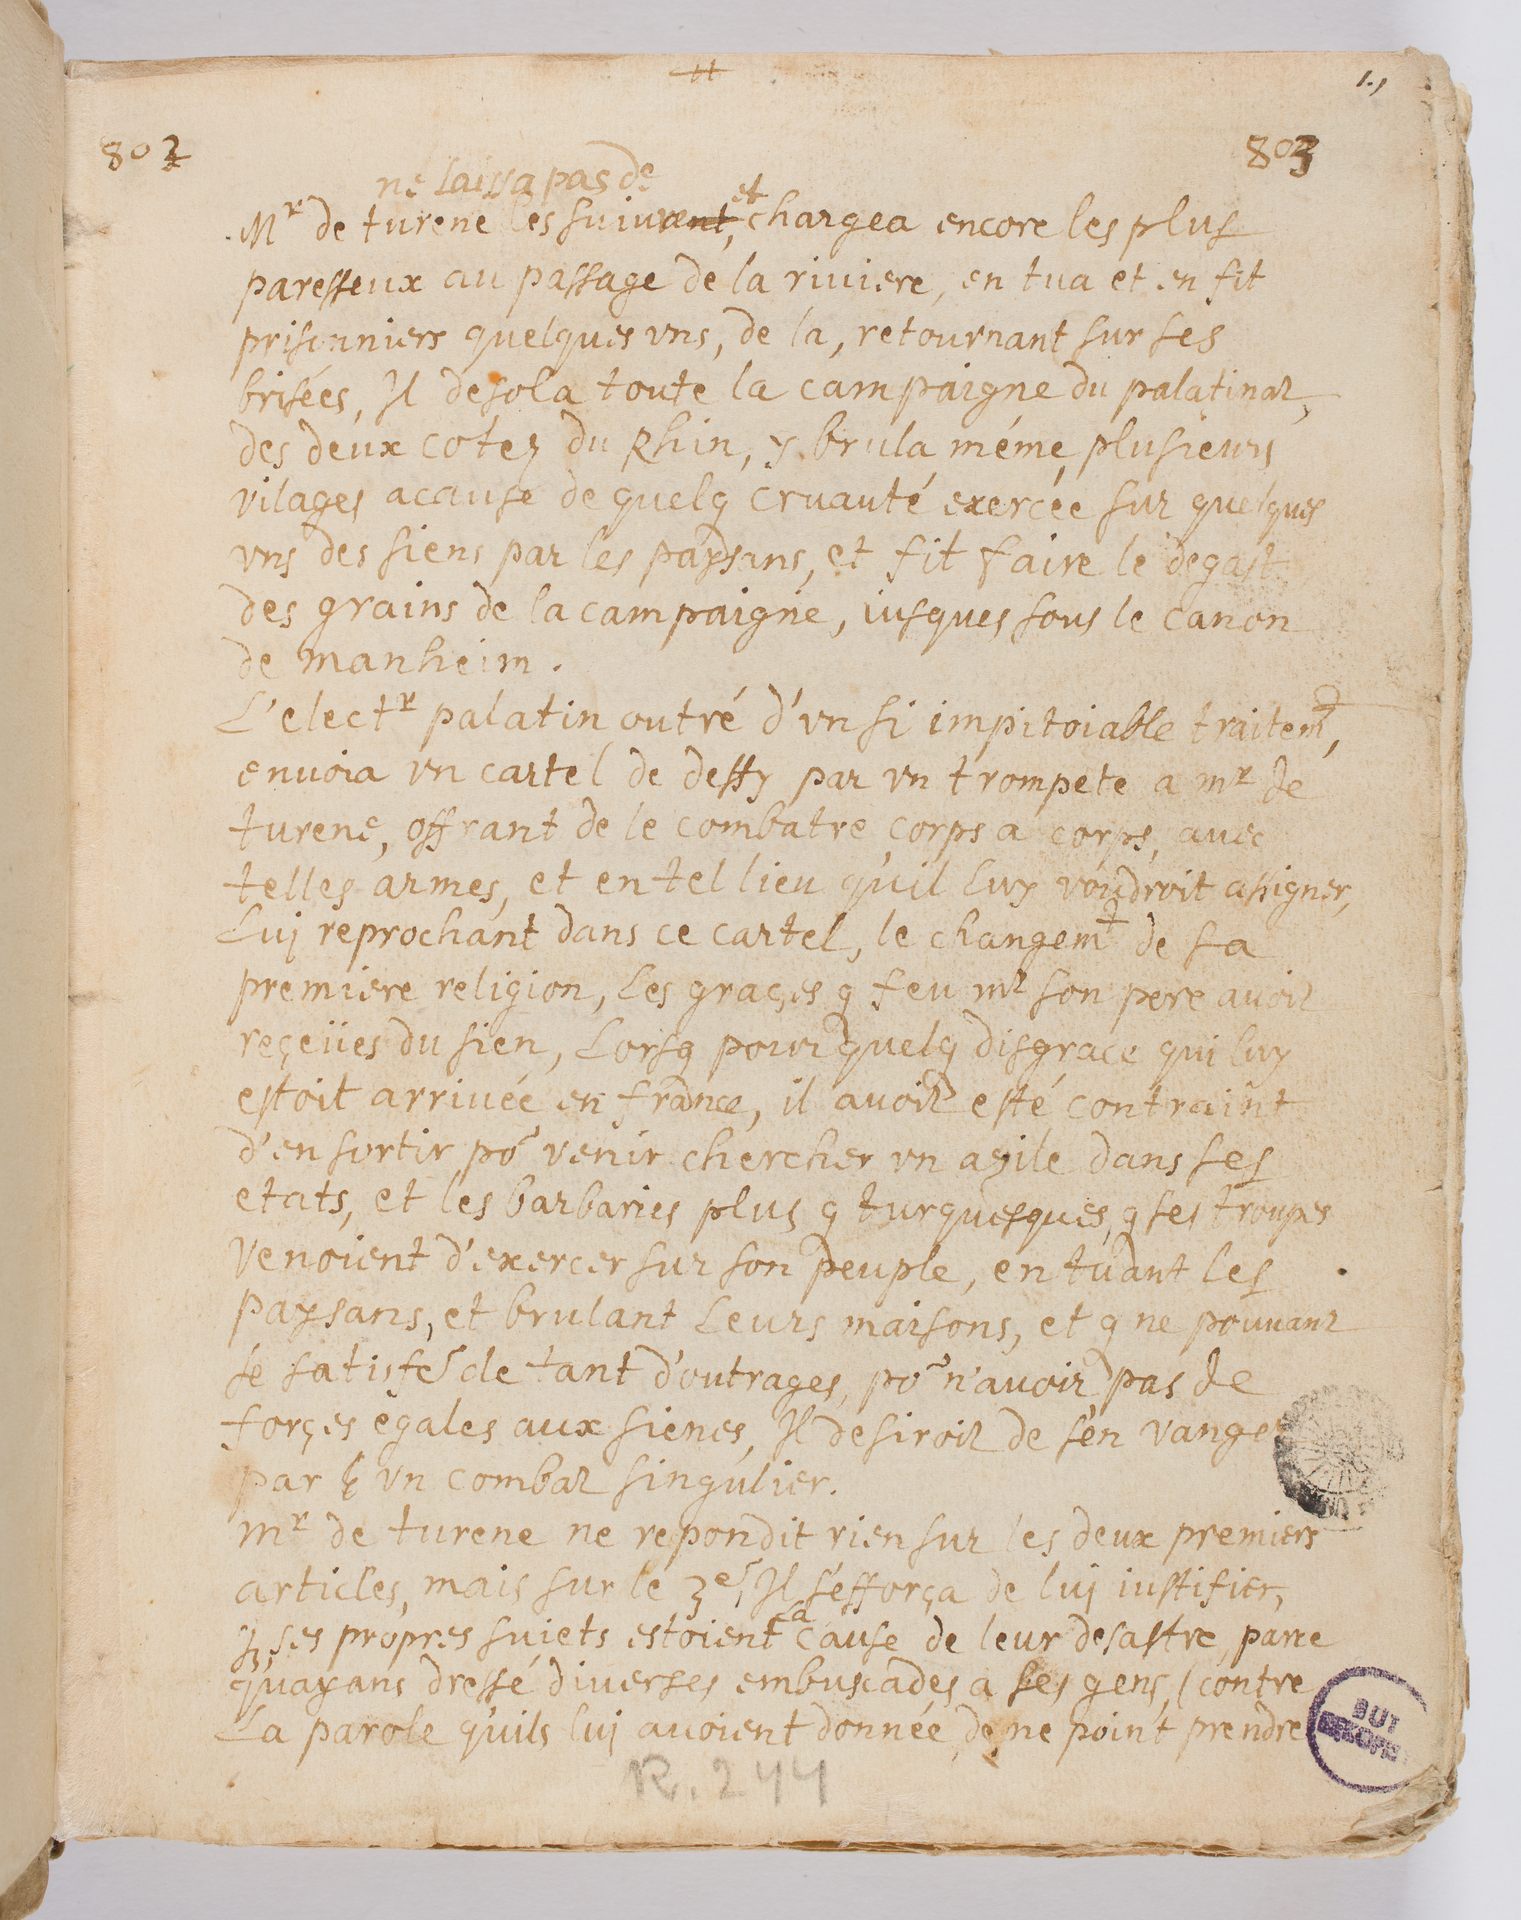 1.,
802
803
ne laissa pas de
Mr de turene les suivant, et chargea encore les plus
paresseux au passage de la riviere, en tua et en fit
prisonniers quelques vns, de la, retournant sur ses
brisées, Il desola toute la campaigne du palatinat,
des deux cotez du Rhin, y brula méme plusieurs
vilages acause de quelq cruauté exercée sur quelques
vns des siens par les paysans, et fit faire le degast
des grains de la campaigne, iusques sous le canon
de manheim.
L'electr palatin outré d'vn si impitoiable traitemt,
envoia vn cartel de deffy par vn trompete a mr de
turene, offrant de le combatre corps a corps, avec
telles armes, et en tel lieu qu'il luy voudroit assigner,
Lui reprochant dans ce cartel, le changemt de sa
premiere religion, Les graçes q feu mr son pere avoit
reçeües du sien, Lorsq pour quelq disgrace qui luy
estoit arrivée en france, il avoit esté contraint
d'en sortir por venir chercher vn azile dans ses
etats, et les barbaries plus q turquesques, q ses troupes
venoient d'exercer sur son peuple, en tuant les
paysans, et brulant Leurs maisons, et q ne pouvant
se satisfer de tant d'outrages, por n'avoir pas de
forçes egales aux sienes, Il desiroit de s'en vanger
par vn combat singulier.
mr de turene ne repondit rien sur les deux premiers
articles, mais sur le 3er, Il s'efforça de lui iustifier,
q ses propres suiets estoient la cause de leur desastre, parce
qu'ayans dressé diverses embuscades a ses gens, (contre
La parole qu'ils lui avoient donnée de ne point prendre
R. 244
BUT